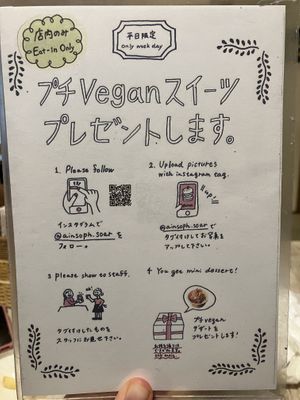 店内のみ
Eat-In Only
平日限定
only week day
プチVeganスイーツ
プレゼントします。
1. Please follow
インスタグラムで
@ainsoph.soar を
フォロー。
2. Upload pictures
with instagram tag.
up!!
@ainsoph.soar で
タグ付けしてお写真を
アップして下さい。
3 please show to staff.
タグ付けしたものを
スタッフにお見せ下さい。
4 You get mini dessert!
プチvegan
デザートを
プレゼントします!